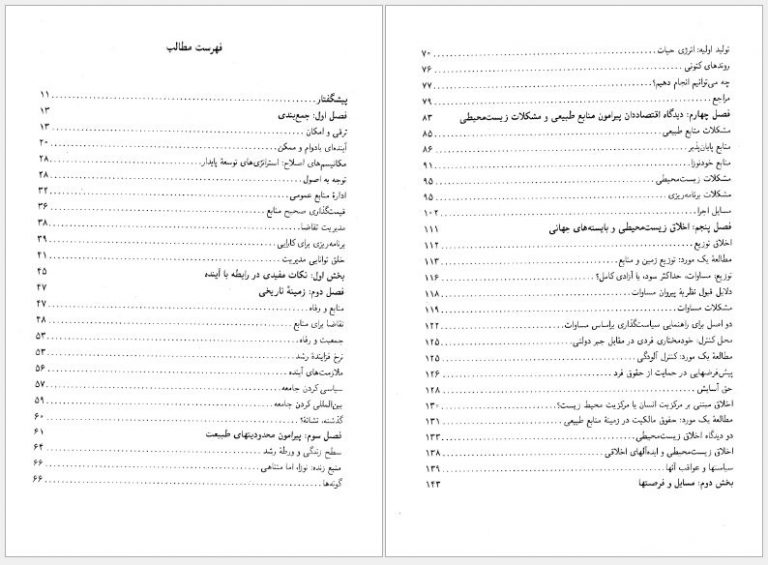 فهرست مطالب
پیشگفتار ۱۱
فصل اول: جمع‌بندی ۱۳
ترقی و امکان ۱۳
آینده‌ای بادوام و ممکن ۲۰
مکانیسم‌های اصلاح: استراتژی‌های توسعهٔ پایدار ۲۸
توجه به اصول ۲۸
ادارهٔ منابع عمومی ۳۲
قیمت‌گذاری صحیح منابع ۳۶
مدیریت تقاضا ۳۸
برنامه‌ریزی برای کارایی ۳۹
خلق توانایی مدیریت ۴۱
بخش اول: نکات مفیدی در رابطه با آینده ۴۵
فصل دوم: زمینهٔ تاریخی ۴۷
منابع و رفاه ۴۷
تقاضا برای منابع ۴۸
جمعیت و رفاه ۵۳
نرخ فزایندهٔ رشد ۵۳
ملازمت‌های آینده ۵۶
سیاسی کردن جامعه ۵۷
بین‌المللی کردن جامعه ۵۹
گذشته، نشانهٔ؟ ۶۰
فصل سوم: پیرامون محدودیتهای طبیعت ۶۱
سطح زندگی و ورطهٔ رشد ۶۴
منبع زنده: نوزا، اما متناهی ۶۶
گونه‌ها ۶۶
تولید اولیه: انرژی حیات ۷۰
روندهای کنونی ۷۶
چه می‌توانیم انجام دهیم؟ ۷۷
مراجع ۷۹
فصل چهارم: دیدگاه اقتصاددانان پیرامون منابع طبیعی و مشکلات زیست‌محیطی ۸۳
مشکلات منابع طبیعی ۸۵
منابع پایان‌پذیر ۸۶
منابع خودنوزا ۹۱
مشکلات زیست‌محیطی ۹۵
مشکلات برنامه‌ریزی ۹۵
مسایل اجرا ۱۰۲
فصل پنجم: اخلاق زیست‌محیطی و بایسته‌های جهانی ۱۱۱
اخلاق توزیع ۱۱۲
مطالعهٔ یک مورد: توزیع زمین و منابع ۱۱۳
توزیع: مساوات، حداکثر سود، یا آزادی کامل؟ ۱۱۶
دلایل قبول نظریهٔ پیروان مساوات ۱۱۸
مشکلات مساوات ۱۱۹
دو اصل برای راهنمایی سیاست‌گذاری براساس مساوات ۱۲۲
محل کنترل: خودمختاری فردی در مقابل جبر دولتی ۱۲۵
مطالعهٔ یک مورد: کنترل آلودگی ۱۲۵
پیش‌فرضهایی در حمایت از حقوق فرد ۱۲۶
حق آسایش ۱۲۸
اخلاق مبتنی بر مرکزیت انسان یا مرکزیت محیط زیست؟ ۱۳۰
مطالعهٔ یک مورد: حقوق مالکیت در زمینهٔ منابع طبیعی ۱۳۱
دو دیدگاه اخلاق زیست‌محیطی ۱۳۳
اخلاق زیست‌محیطی و ایده‌آلهای اخلاقی ۱۳۸
سیاستها و عواقب آنها ۱۳۹
بخش دوم: مسایل و فرصتها ۱۴۳